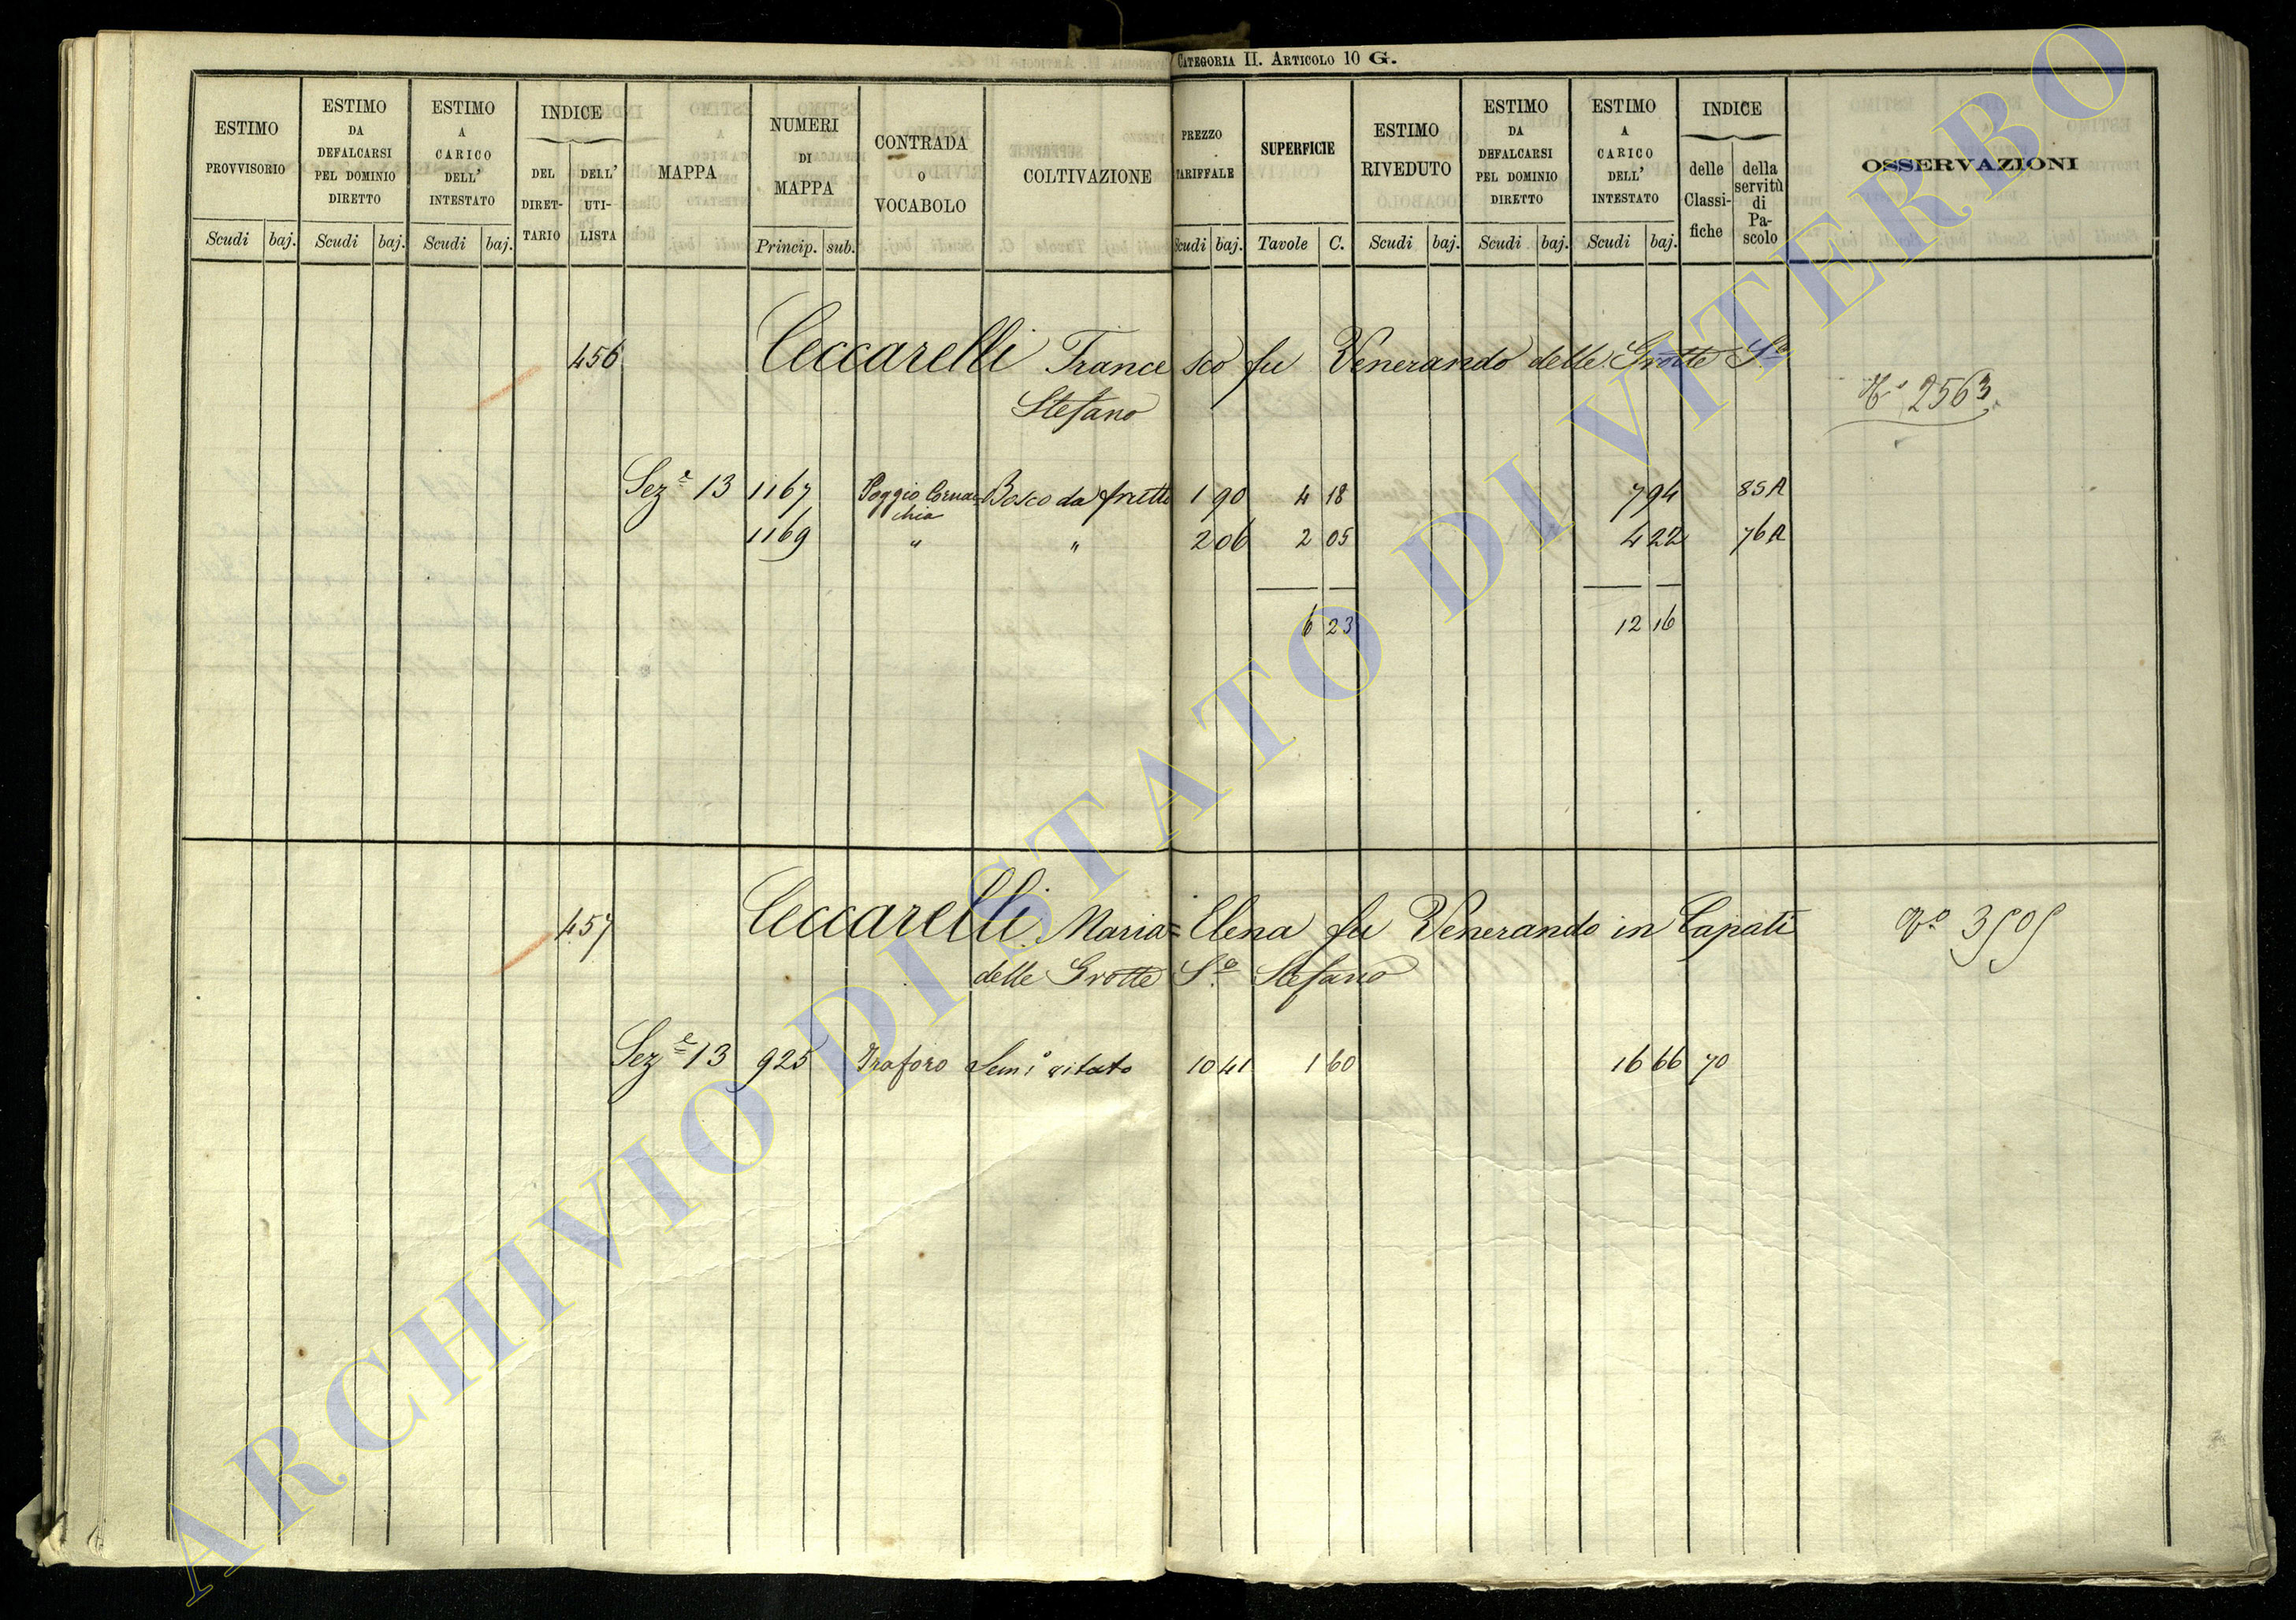 CATEGORIA II. ARTICOLO 10 G.
ESTIMO PROVVISORIO
ESTIMO DA DEFALCARSI PEL DOMINIO DIRETTO
ESTIMO A CARICO DELL' INTESTATO
INDICE
DEL DIRET-TARIO
DELL' UTI-LISTA
MAPPA
NUMERI DI MAPPA
CONTRADA O VOCABOLO
COLTIVAZIONE
PREZZO TARIFFALE
SUPERFICIE
ESTIMO RIVEDUTO
ESTIMO DA DEFALCARSI PEL DOMINIO DIRETTO
ESTIMO A CARICO DELL' INTESTATO
INDICE
delle Classi-fiche
della servitù di Pa-scolo
OSSERVAZIONI
Scudi baj. Scudi baj. Scudi baj. Princip. sub. Scudi baj. Tavole C. Scudi baj. Scudi baj. Scudi baj.
456 Ceccarelli Francesco fu Venerando delle Grotte Sto
Stefano
No 2563
Seze 13 1167 Poggio Cornac-chia Bosco da frutto 1 90 4 18 7 94 85 A
1169 " " 2 06 2 05 4 22 76 A
6 23 12 16
457 Ceccarelli Maria=Elena fu Venerando in Capati
delle Grotte So Stefano
No 3505
Seze 13 925 Traforo Semo vitato 10 41 1 60 16 66 70
ARCHIVIO DI STATO DI VITERBO